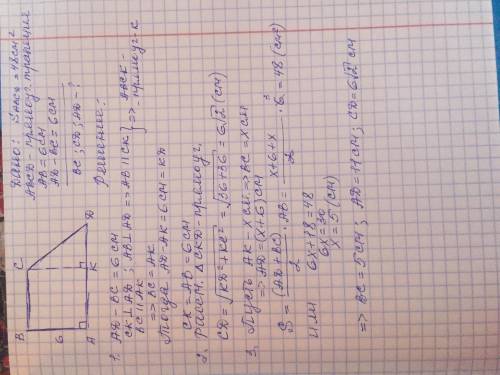 Дано: SABCD = 48 см²
ABCD - прямоуг. трапеция
AB = 6 см
AD - BC = 6 см
BC; CD; AD - ?
Решение:
B C
6
A K D
1. AD - BC = 6 см
CK ⊥ AD; AB ⊥ AD => AB || CK } => ABCK -
BC || AK прямоуг-к
=> BC = AK
Тогда AD - AK = 6 см = KD
CK = AB = 6 см
2. Рассм. △CKD - прямоуг.
CD = √KD² + KC² = √36+36 = 6√2 (см)
3. Пусть AK - x см => BC = x см
=> AD = (x + 6) см
S = (AD + BC) / 2 · AB = x+6+x / 2 · 6 = 48 (см²)
3
или 6x + 18 = 48
6x = 30
x = 5 (см)
=> BC = 5 см; AD = 11 см; CD = 6√2 см